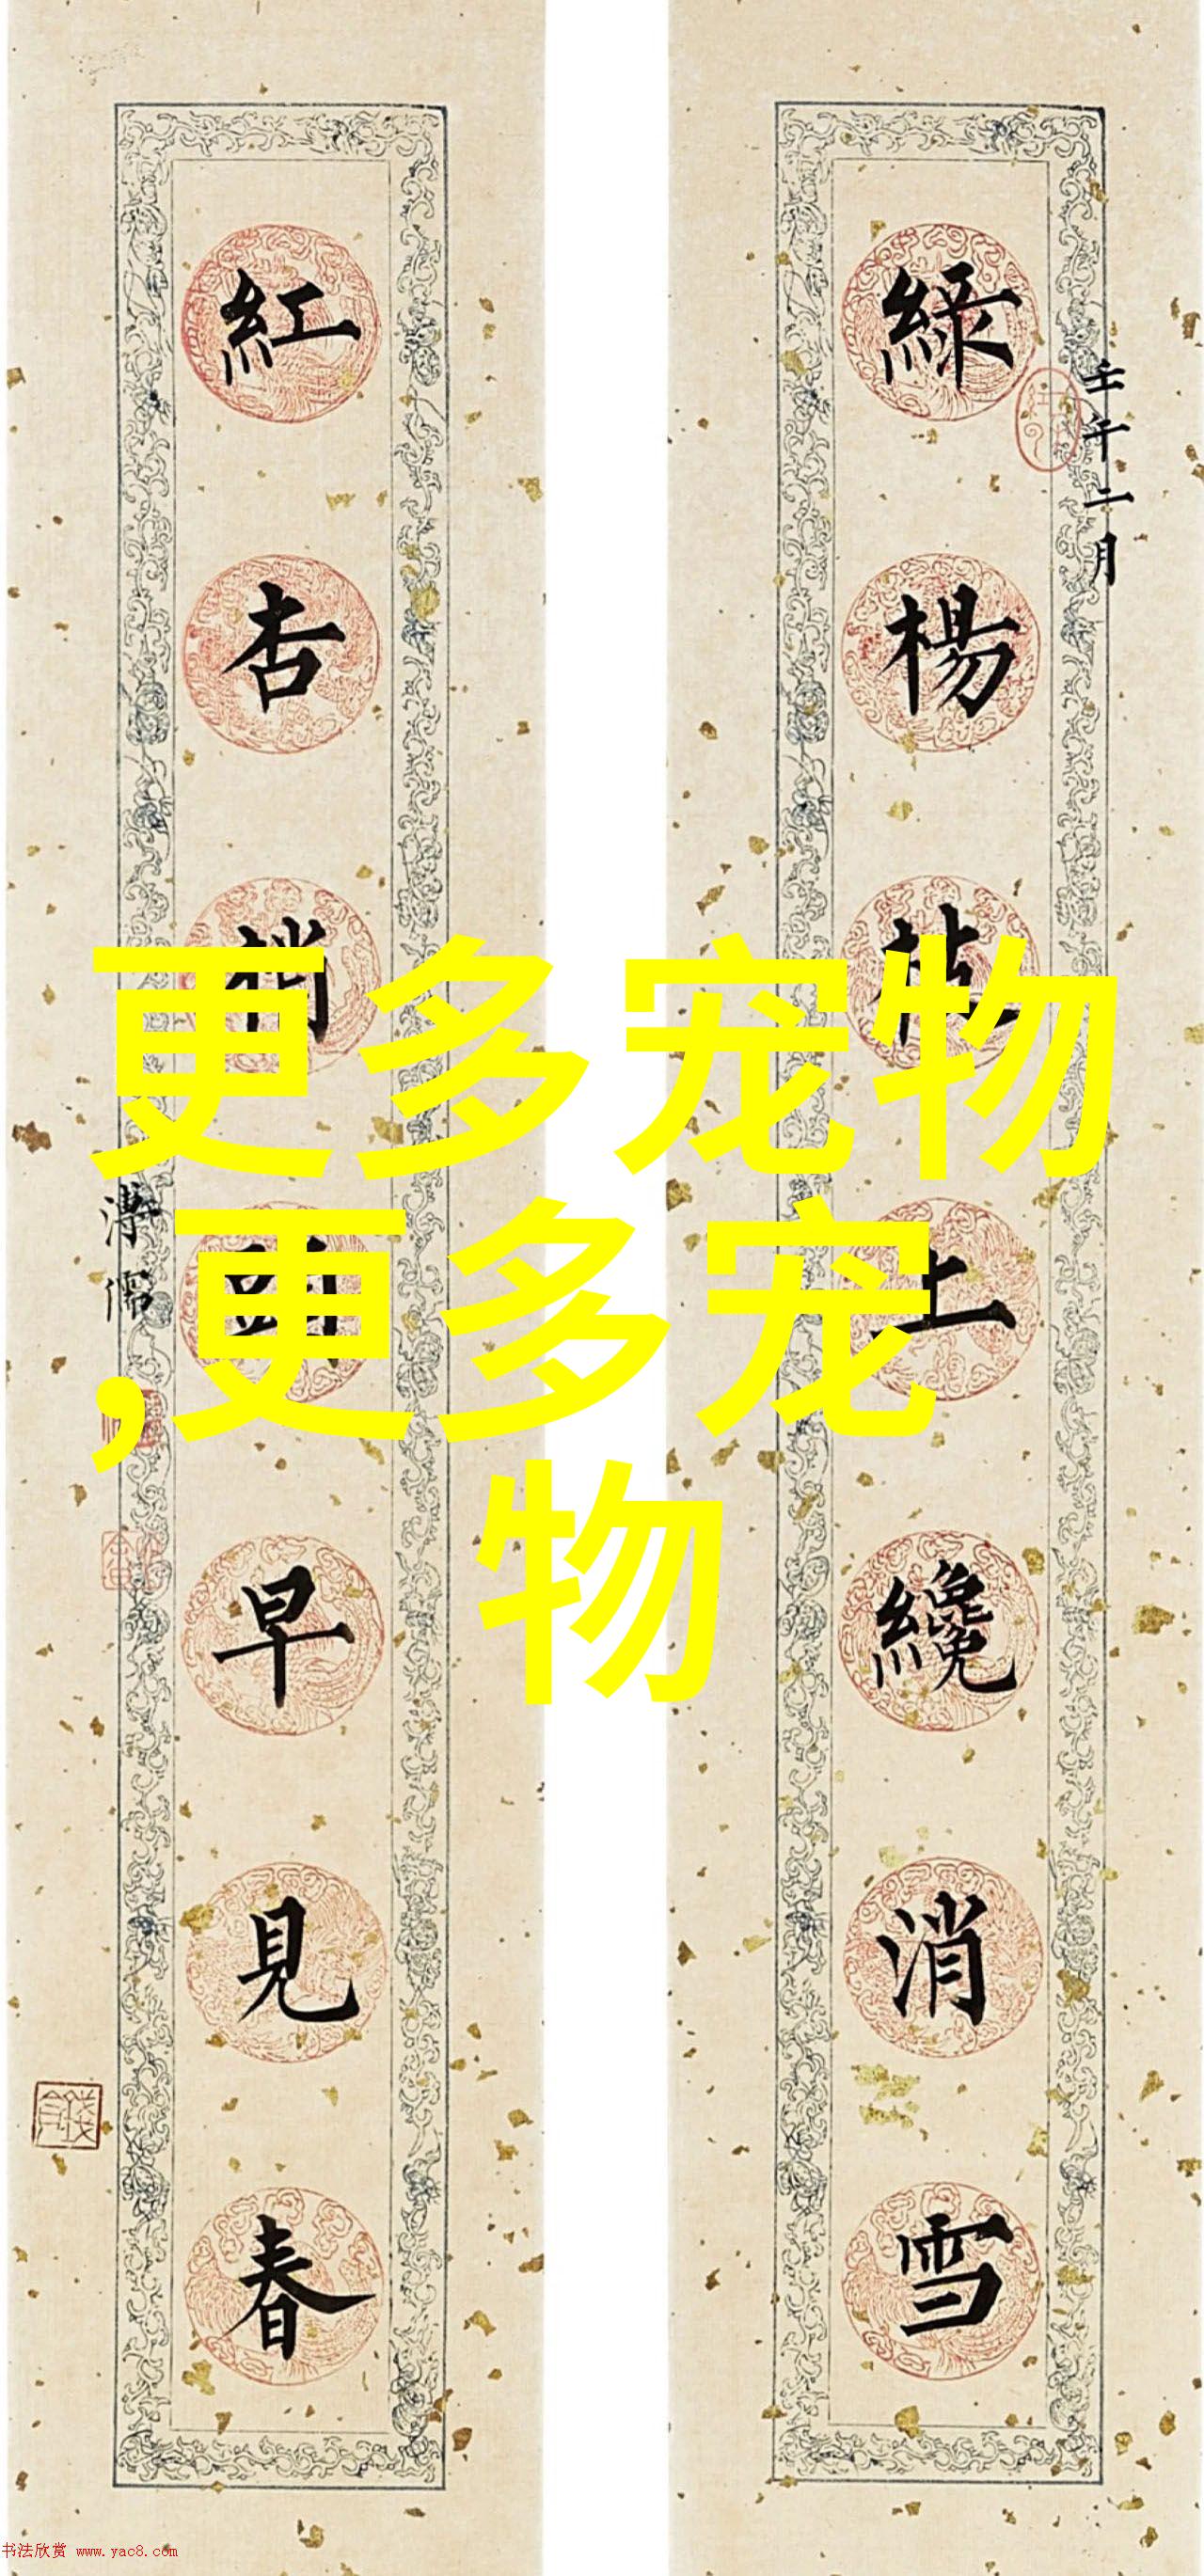 綠楊枝上纔消雪
壬午二月
紅杏梢頭早見春
溥儒
更多宠物
,更多宠
物
书法欣赏 www.yac8.com